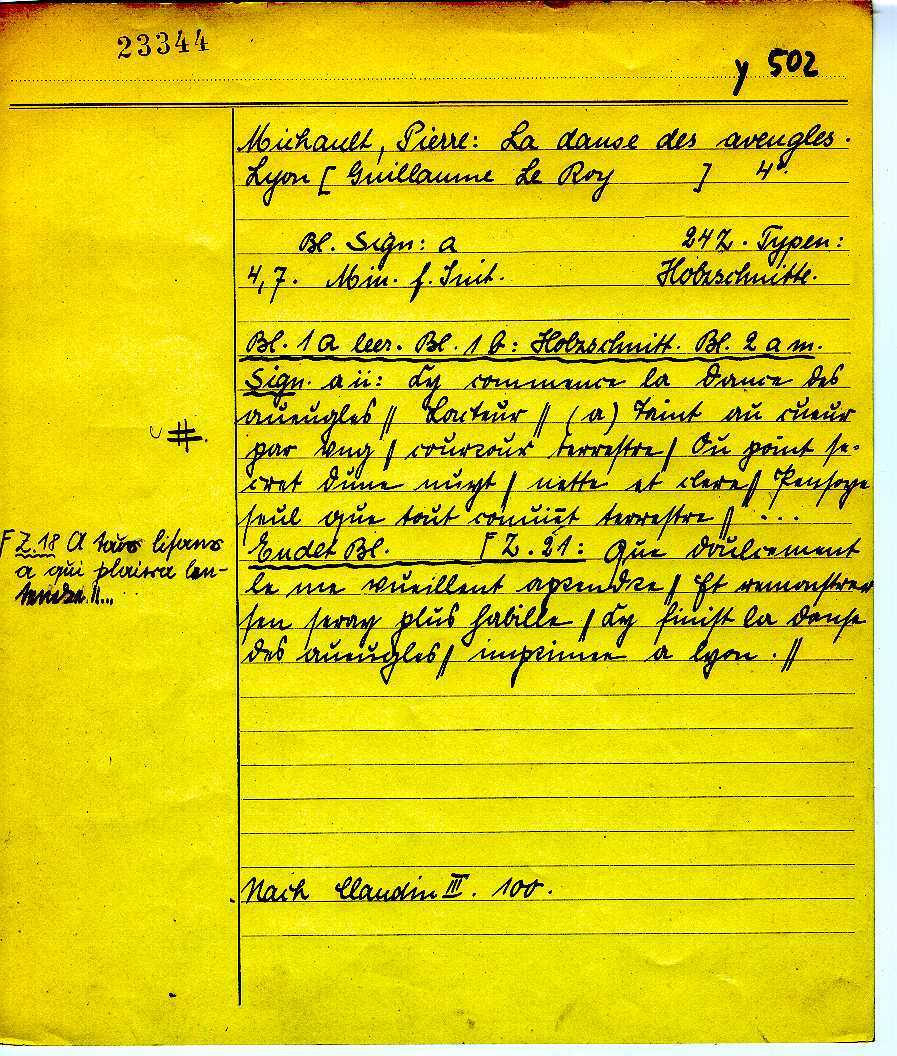 23344
y 502
Michault, Pierre: La danse des aveugles.
Lyon [ Guillaume Le Roy ] 4°.
Bl. Sign: a 24Z. Typen:
4, 7. Min. f. Init. Holzschnitte.
Bl. 1a leer. Bl. 1b: Holzschnitt. Bl. 2a m.
Sign. aii: Cy commence la dance des
aueugles // Lacteur // (a) Taint au cueur
par vng / courzour terrestre / Ou point se-
cret dune nuyt / nette et clere // Pensoye
seul que tout conuiēt terrestre // ...
Endet Bl. F Z. 21: Que doulcement
le me vueillent aprendre / Et remonstrer
sen seray plus habille / Cy finist la danse
des aueugles / imprimee a lyon. //
#.
F Z. 18 A tous lisans
a qui plaira len-
tendre // ...
Nach Claudin III. 100.